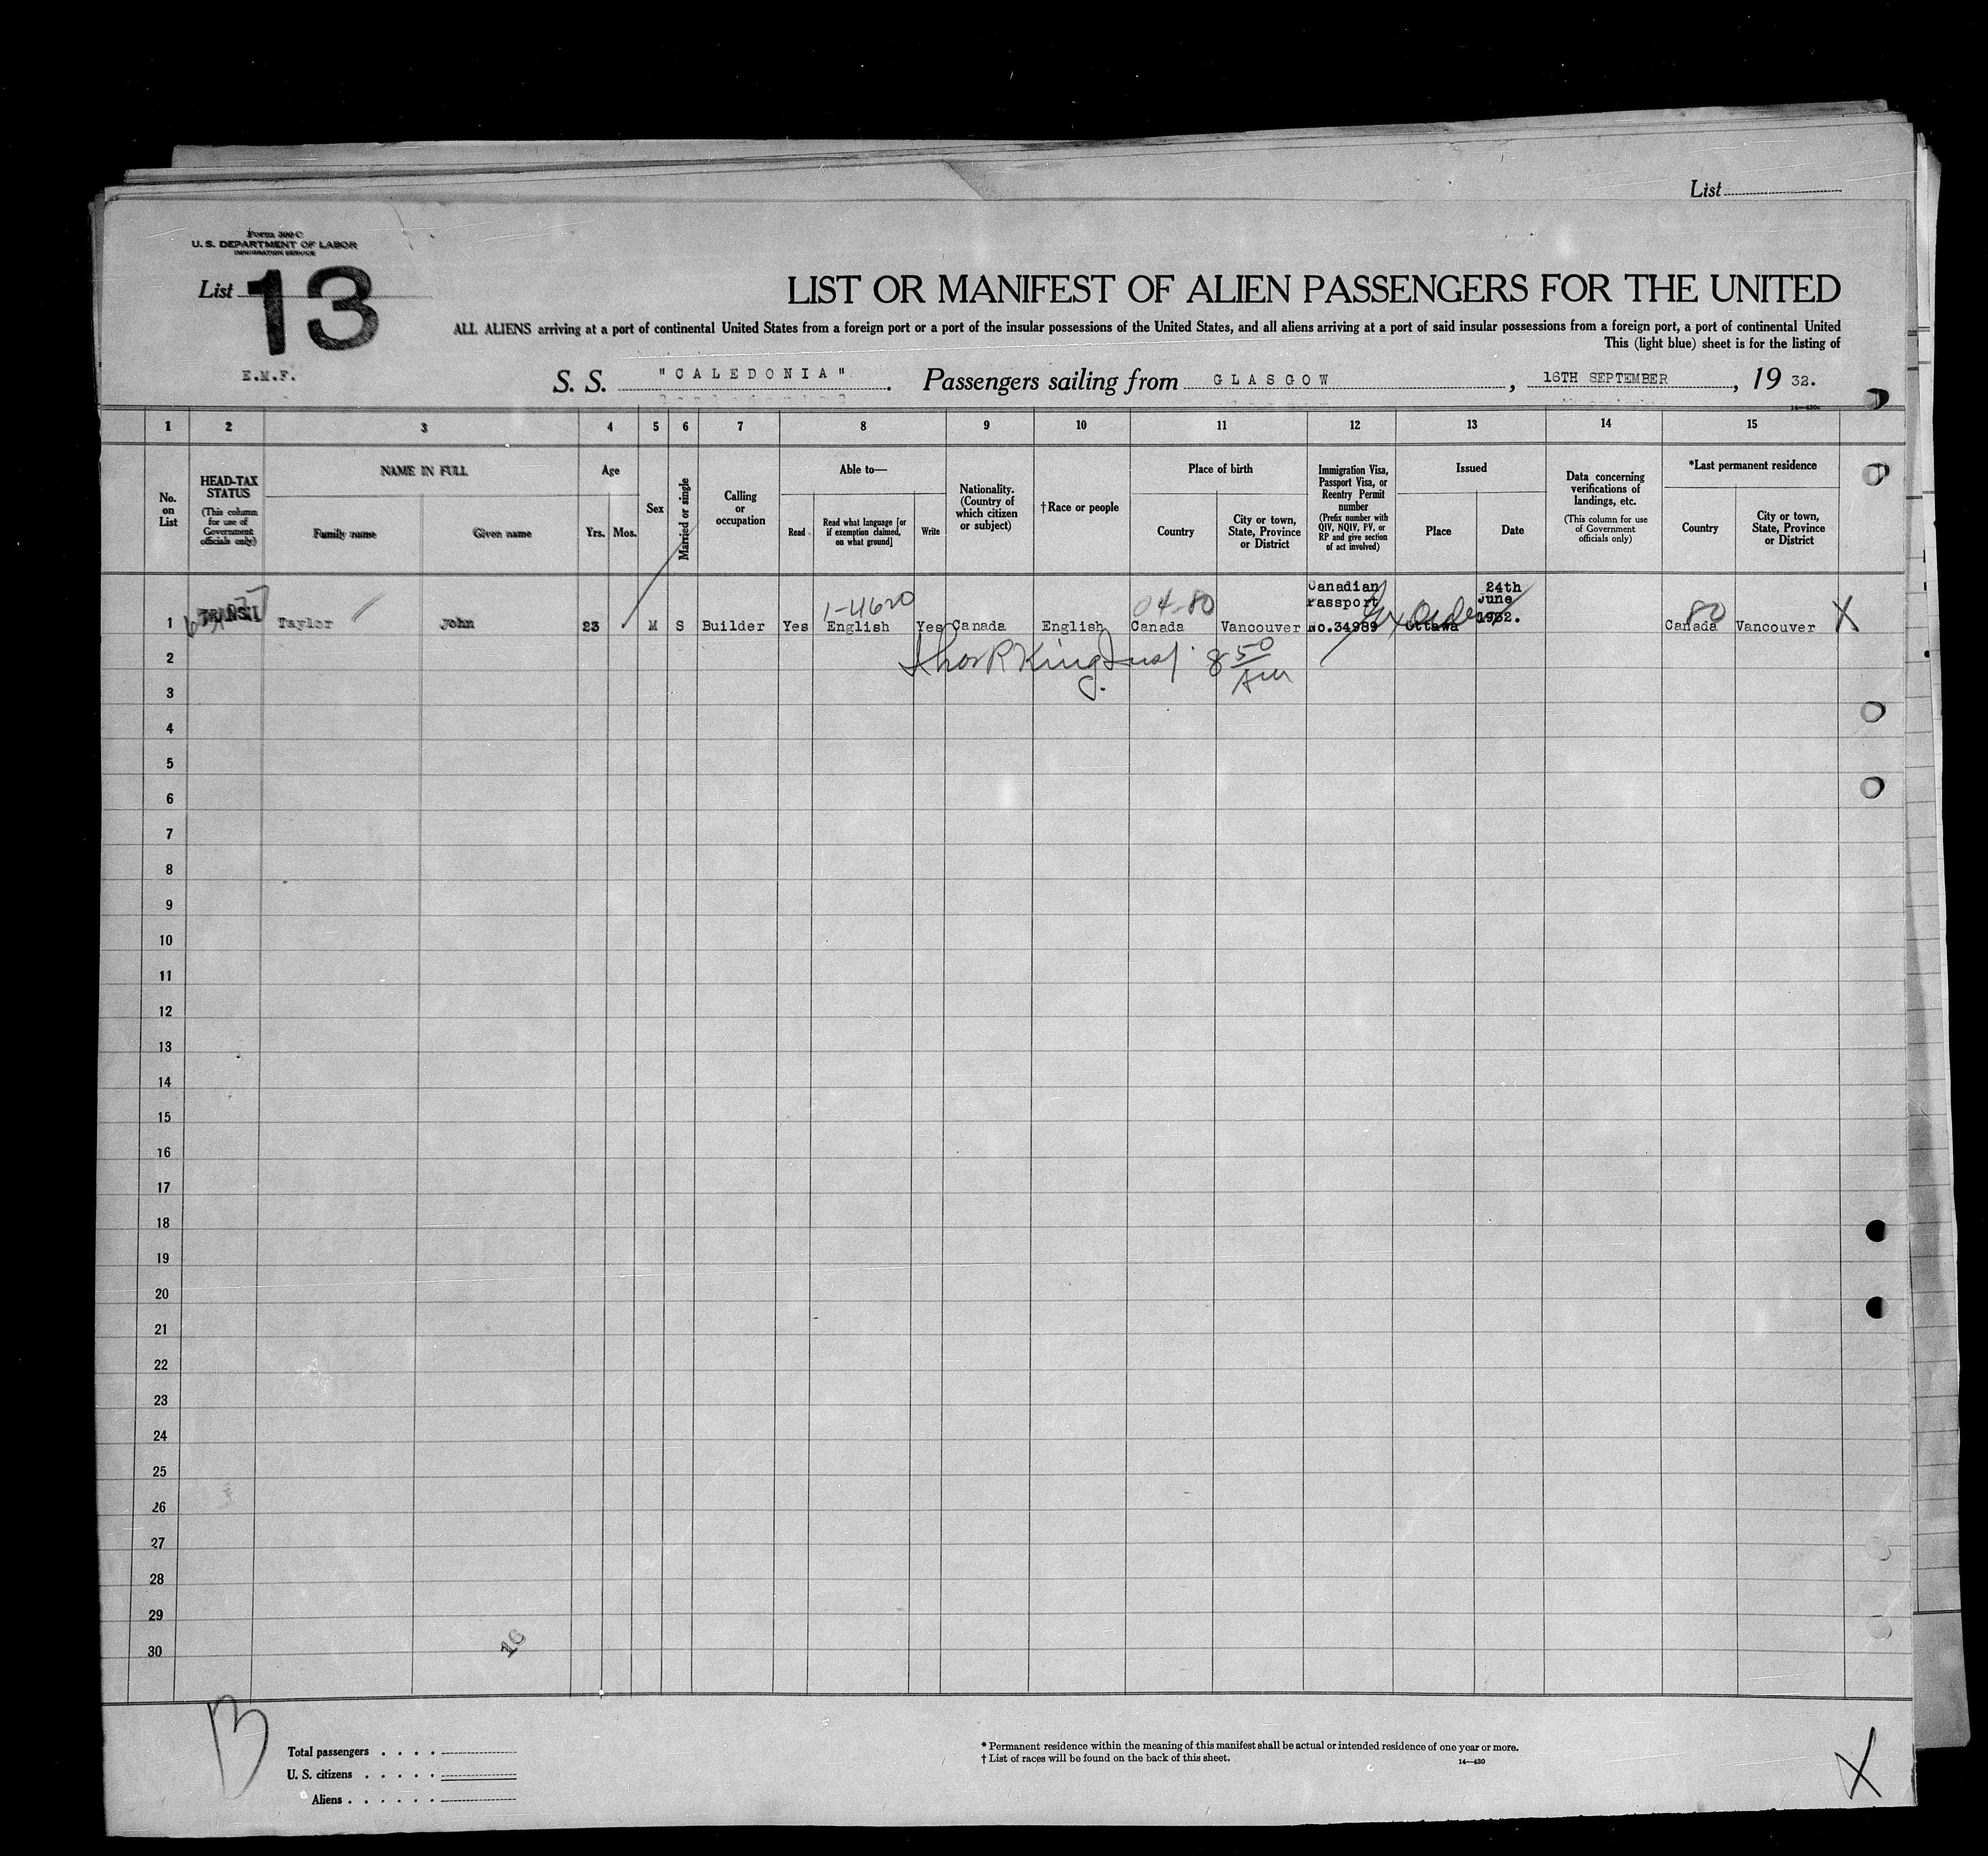 List
Form 500 C
U. S. DEPARTMENT OF LABOR
IMMIGRATION SERVICE
List 13
LIST OR MANIFEST OF ALIEN PASSENGERS FOR THE UNITED
ALL ALIENS arriving at a port of continental United States from a foreign port or a port of the insular possessions of the United States, and all aliens arriving at a port of said insular possessions from a foreign port, a port of continental United
This (light blue) sheet is for the listing of
E.M.F.
S. S. "CALEDONIA". Passengers sailing from GLASGOW, 16TH SEPTEMBER, 19 32.
14—430
1 2 3 4 5 6 7 8 9 10 11 12 13 14 15
No. on List
HEAD-TAX STATUS
(This column for use of Government officials only)
NAME IN FULL
Family name
Given name
Age
Yrs. Mos.
Sex
Married or single
Calling or occupation
Able to—
Read
Read what language [or if exemption claimed, on what ground]
Write
Nationality. (Country of which citizen or subject)
†Race or people
Place of birth
Country
City or town, State, Province or District
Immigration Visa, Passport Visa, or Reentry Permit number
(Prefix number with QIV, NQIV, PV, or RP and give section of act involved)
Issued
Place
Date
Data concerning verifications of landings, etc.
(This column for use of Government officials only)
*Last permanent residence
Country
City or town, State, Province or District
1-4620
04-80
80
1 TRANSIT Taylor John 23 M S Builder Yes English Yes Canada English Canada Vancouver Canadian Passport No.34989 Ottawa 24th June 1932. Canada Vancouver X
2
King 8 50 AM
3
4
5
6
7
8
9
10
11
12
13
14
15
16
17
18
19
20
21
22
23
24
25
26
27
28
29
30
16
13
Total passengers . . . .
U. S. citizens . . . . .
Aliens . . . . . .
* Permanent residence within the meaning of this manifest shall be actual or intended residence of one year or more.
† List of races will be found on the back of this sheet.
14—430
X